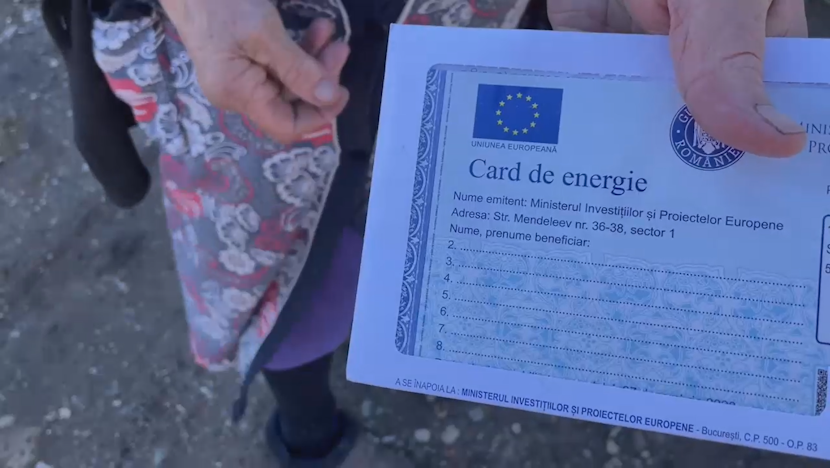 UNIUNEA EUROPEANĂ
ROMÂNIEI
Card de energie
Nume emitent: Ministerul Investițiilor și Proiectelor Europene
Adresa: Str. Mendeleev nr. 36-38, sector 1
Nume, prenume beneficiar:
2.
3.
4.
5.
6.
7.
8.
A SE ÎNAPOIA LA : MINISTERUL INVESTIȚIILOR ȘI PROIECTELOR EUROPENE - București, C.P. 500 - O.P. 83